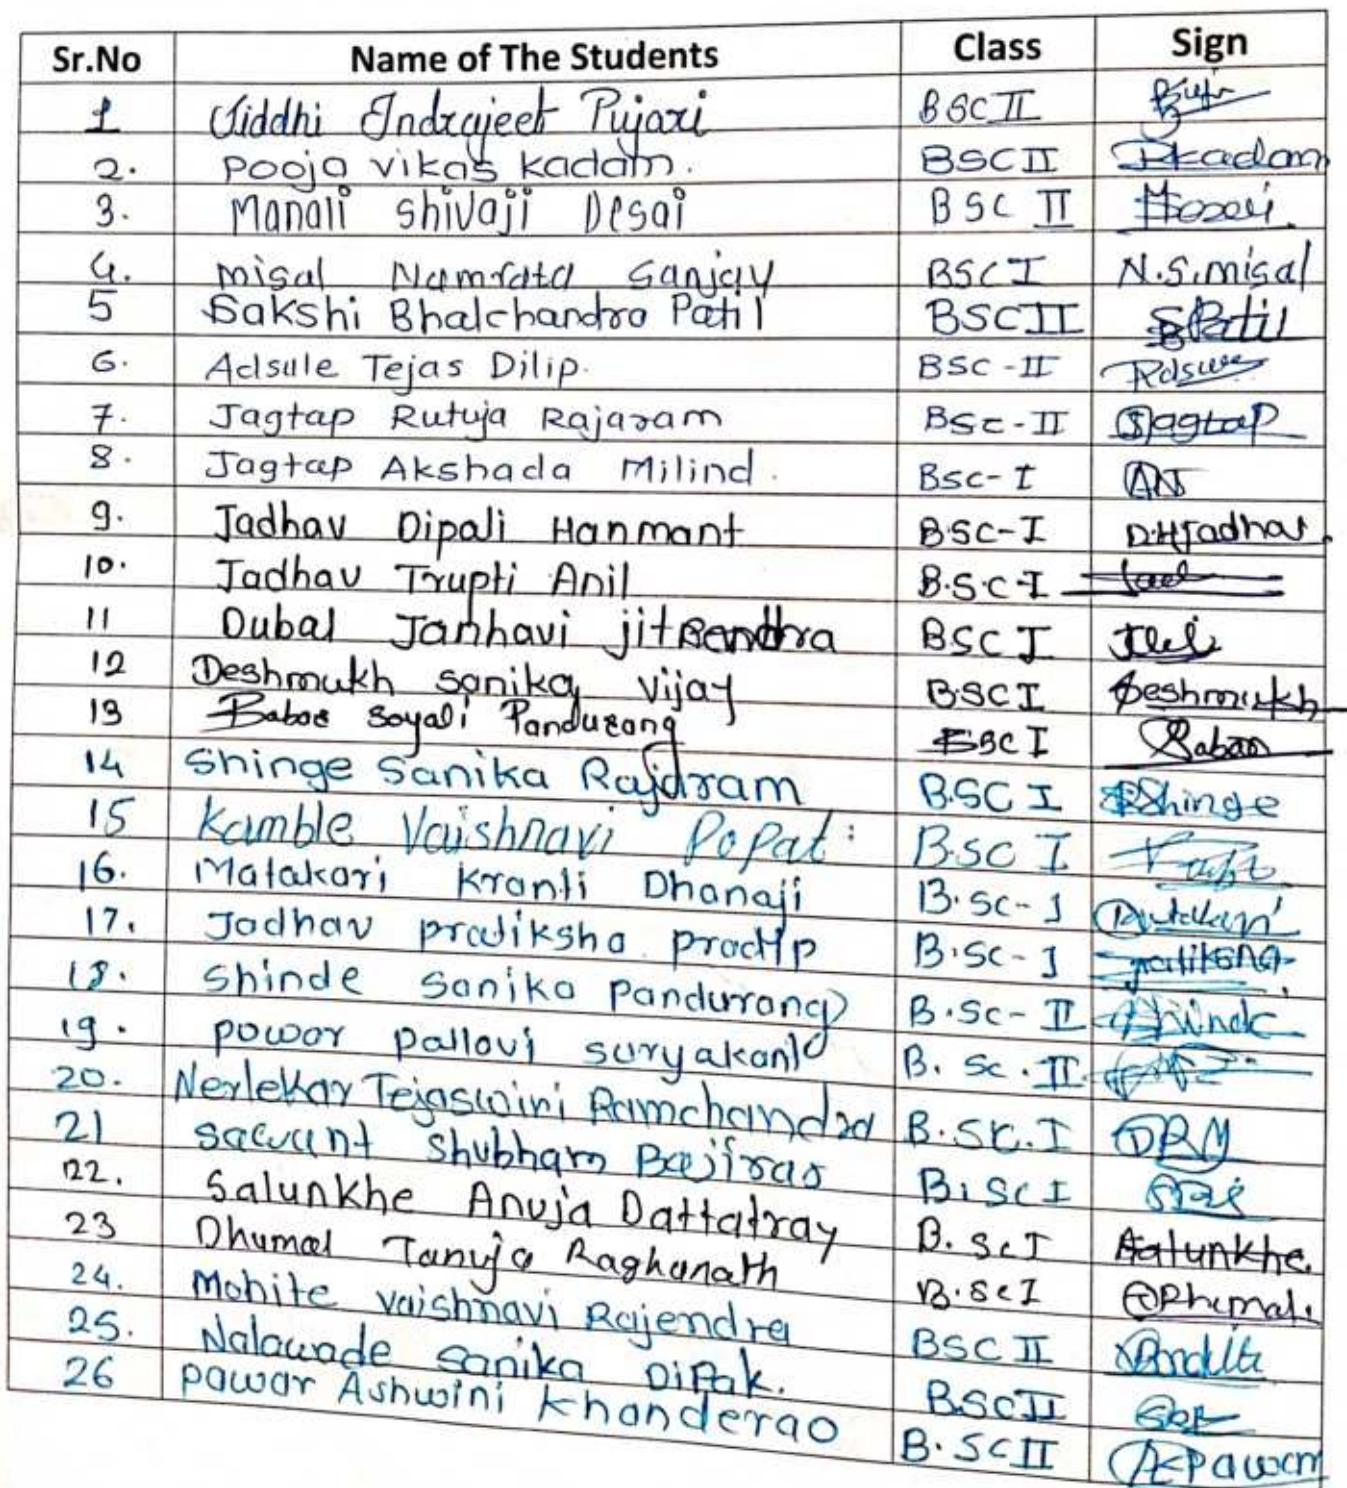 Sr.No Name of The Students Class Sign
1 Indrajeet Pujari BSC II
2. Pooja vikas kadam. BSC II Pkadam
3. Manali Shivaji Desai BSC II
4. misal Namrata Sanjay BSC I N.S.misal
5 Sakshi Bhalchandra Patil BSC II SPatil
6. Adsule Tejas Dilip. BSC -II
7. Jagtap Rutuja Rajaram BSC-II Jagtap
8. Jagtap Akshada Milind. BSC-I
9. Jadhav Dipali Hanmant B.SC-I D.H.Jadhav
10. Jadhav Trupti Anil B.S.C-I
11 Dubal Janhavi jitendra BSC I
12 Deshmukh Sanika Vijay BSC I Deshmukh
13 Babar Sayali Pandurang BSC I
14 Shinge Sanika Rajaram B.SC I Shinge
15 Kamble Vaishnavi Popat B.SC I
16. Matakari Kranti Dhanaji B.SC-I
17. Jadhav pratiksha pradip B.SC-I pratiksha
18. Shinde Sanika Pandurang B.Sc-II Shinde
19. powar pallavi suryakant B. Sc. II
20. Nerlekar Tejaswini Ramchandra B.SC.I
21 sawant Shubham Bajirao B.Sc I
22. Salunkhe Anuja Dattatray B. Sc I Aalunkhe
23 Dhumal Tanuja Raghunath B.Sc I Dhumal
24. Mohite vaishnavi Rajendra BSC II
25. Nalawade Sanika Dipak. BSC II
26 Pawar Ashwini Khanderao B.SC II Pawar